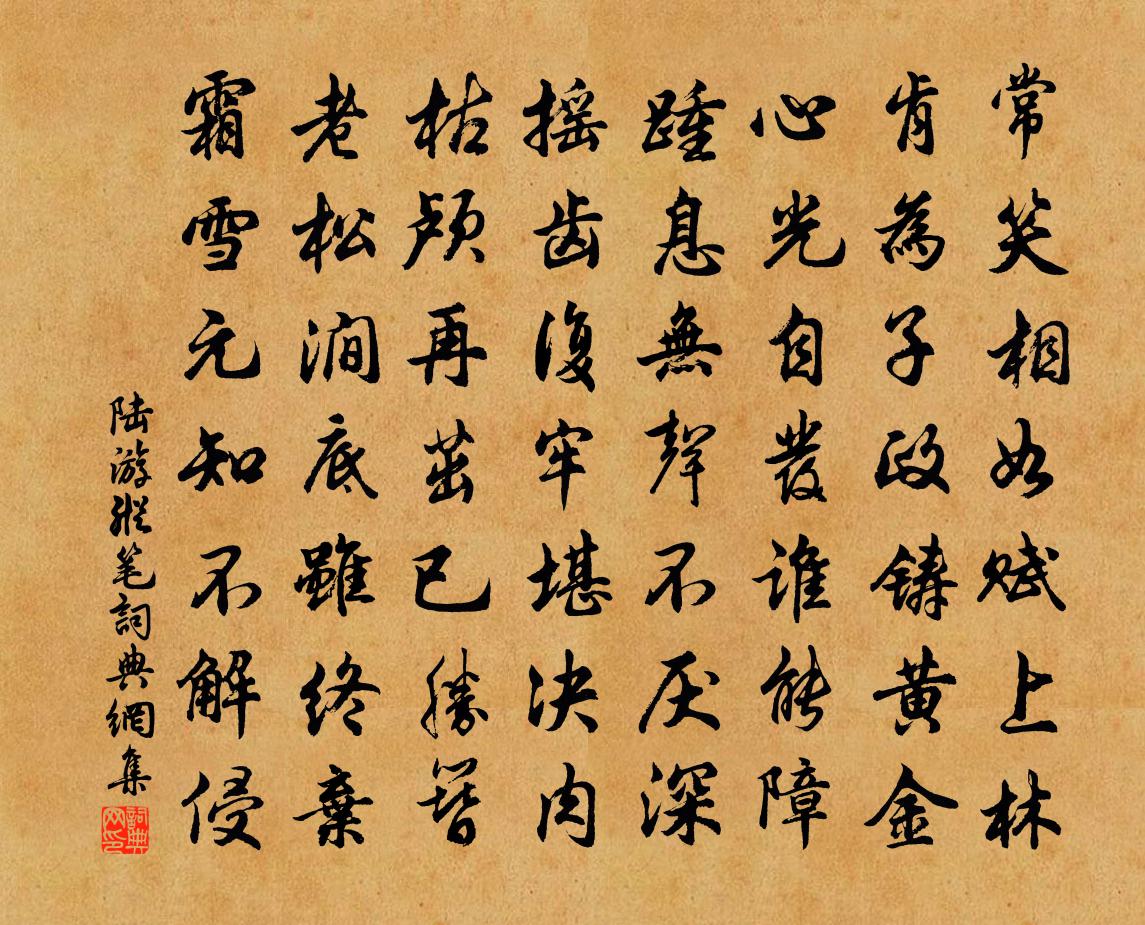 常笑相如赋上林
肯為子政鑄黄金
心光自發誰能障
踵息無聲不厌深
摇齿復牢堪决肉
枯颅再茁已勝簪
老松澗底雖终棄
霜雪元知不解侵
陆游縱笔詞典網集
詞典网印